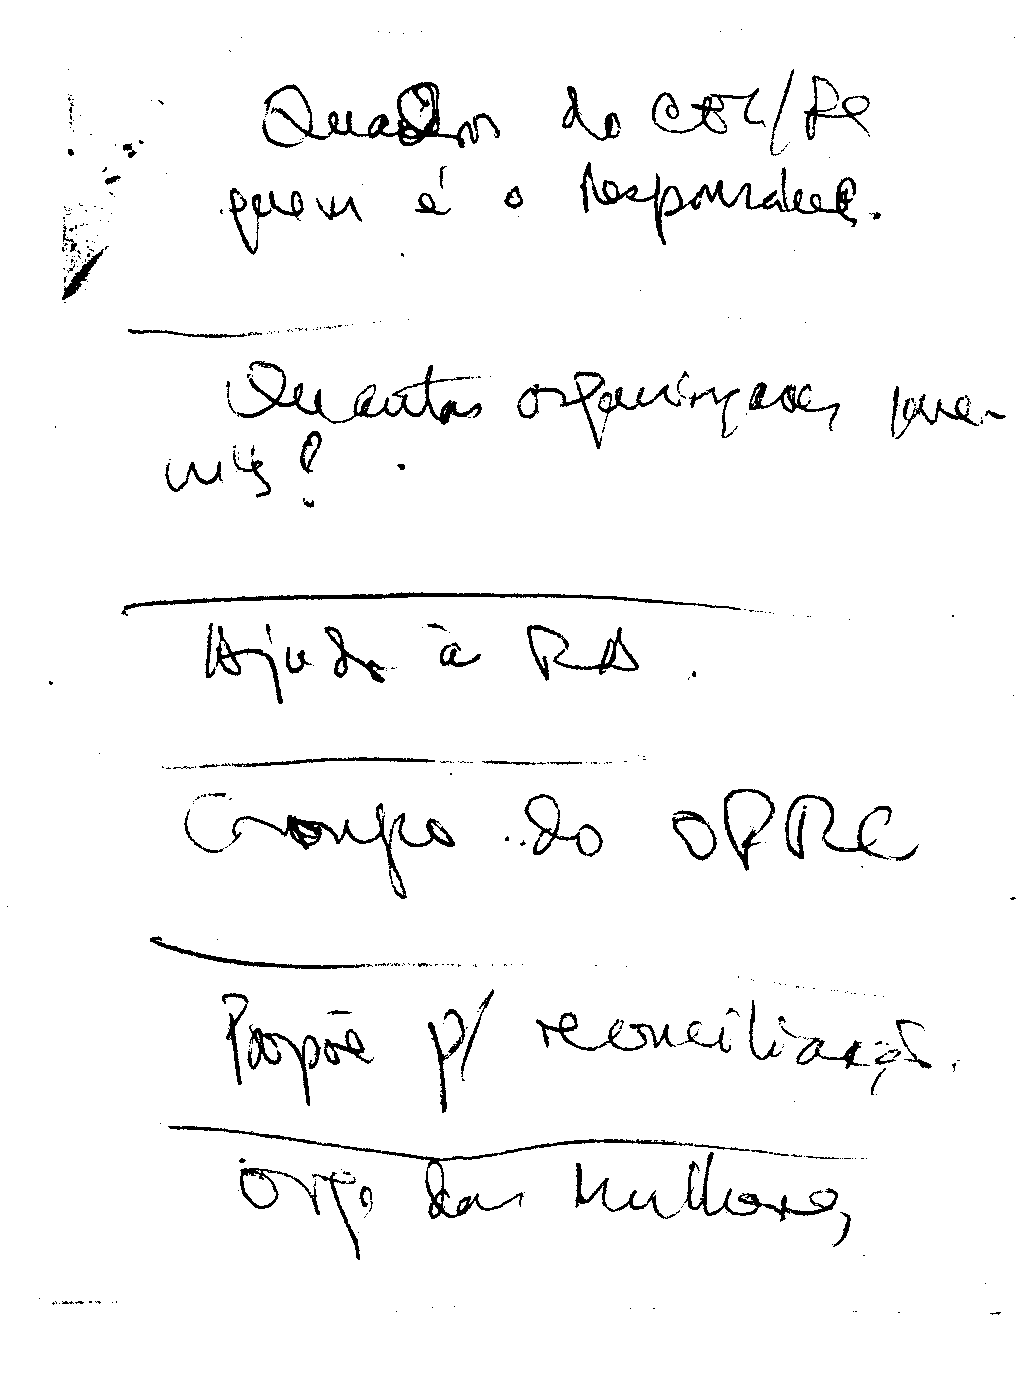 Quadros do CTL/PE
quem é o responsavel.
Quantas organizações juve-
nis?
Ajuda à RA.
Grupo do OPRC
p/ reconciliação.
Orgº das Mulheres,